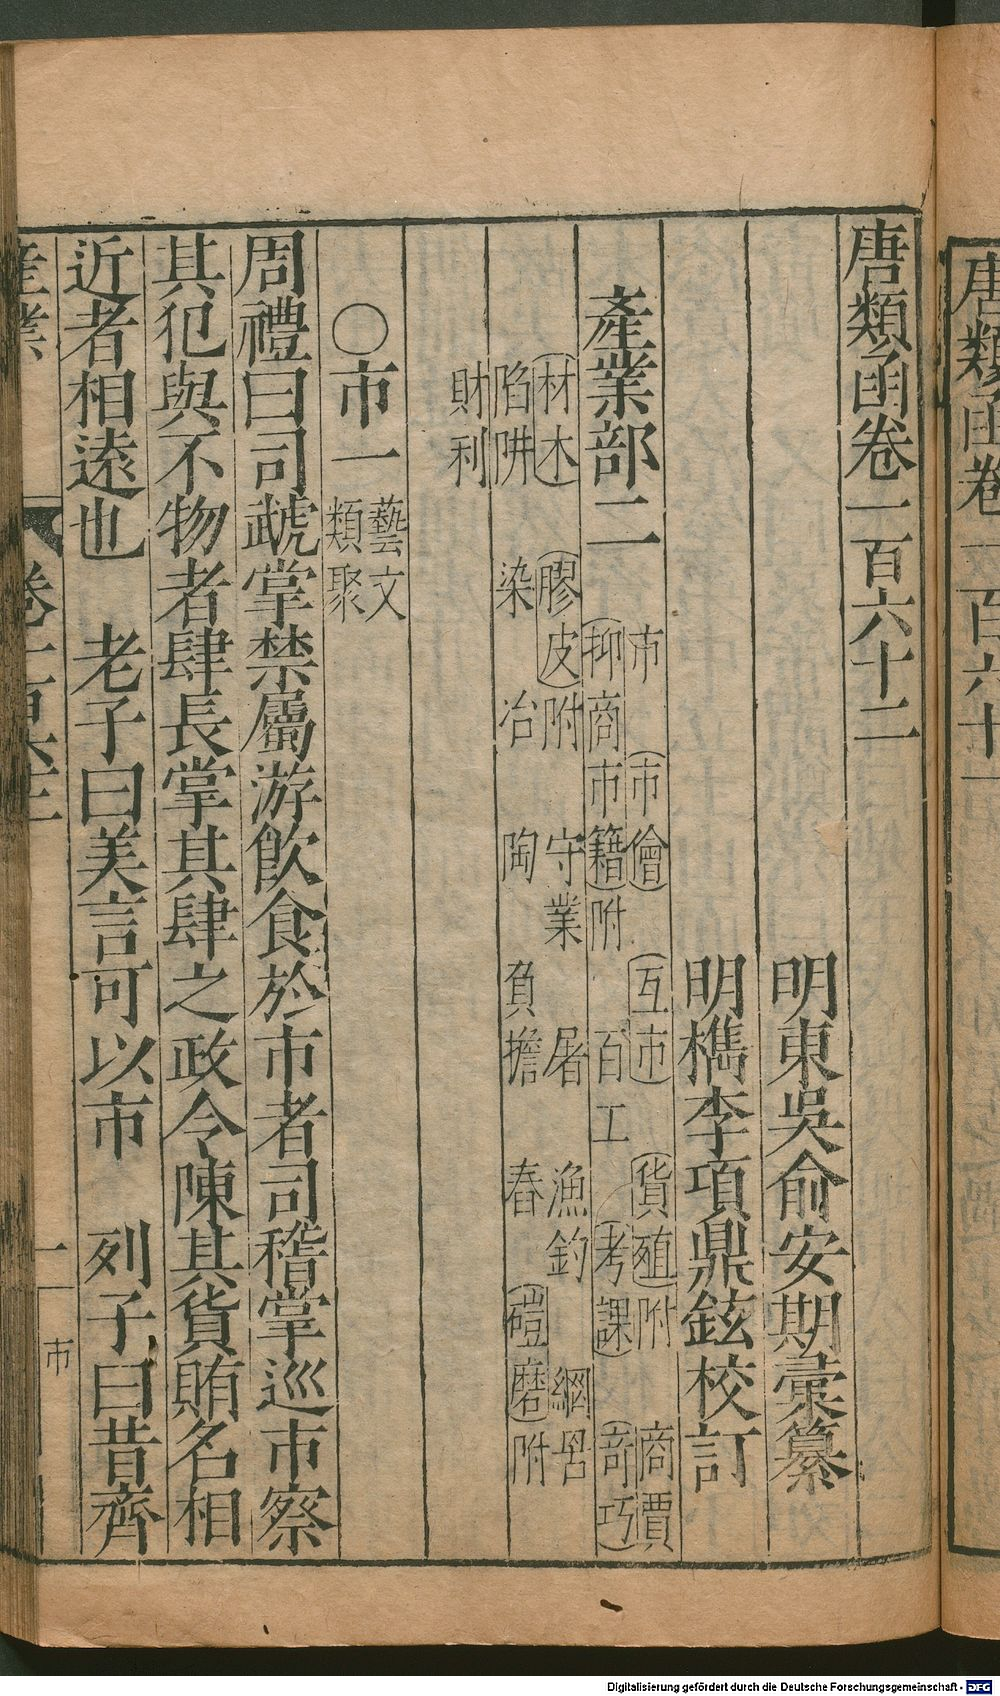 唐類函卷一百六十一
唐類函卷一百六十二
明東吳俞安期彙纂
明檇李項鼎鉉校訂
產業部二
市 市儈 互市 貨殖附 商賈
抑商市籍附 百工 考課 奇巧
材木 膠皮附 守業 屠 漁釣 網罟
陷阱 染 冶 陶 負擔 舂 磑磨附
財利
○市一 藝文類聚
周禮曰司虣掌禁屬游飲食於市者司稽掌巡市察
其犯與不物者肆長掌其肆之政令陳其貨賄名相
近者相逺也 老子曰美言可以市 列子曰昔齊
產業 卷一百六十二 一 市
Digitalisierung gefördert durch die Deutsche Forschungsgemeinschaft - DFG